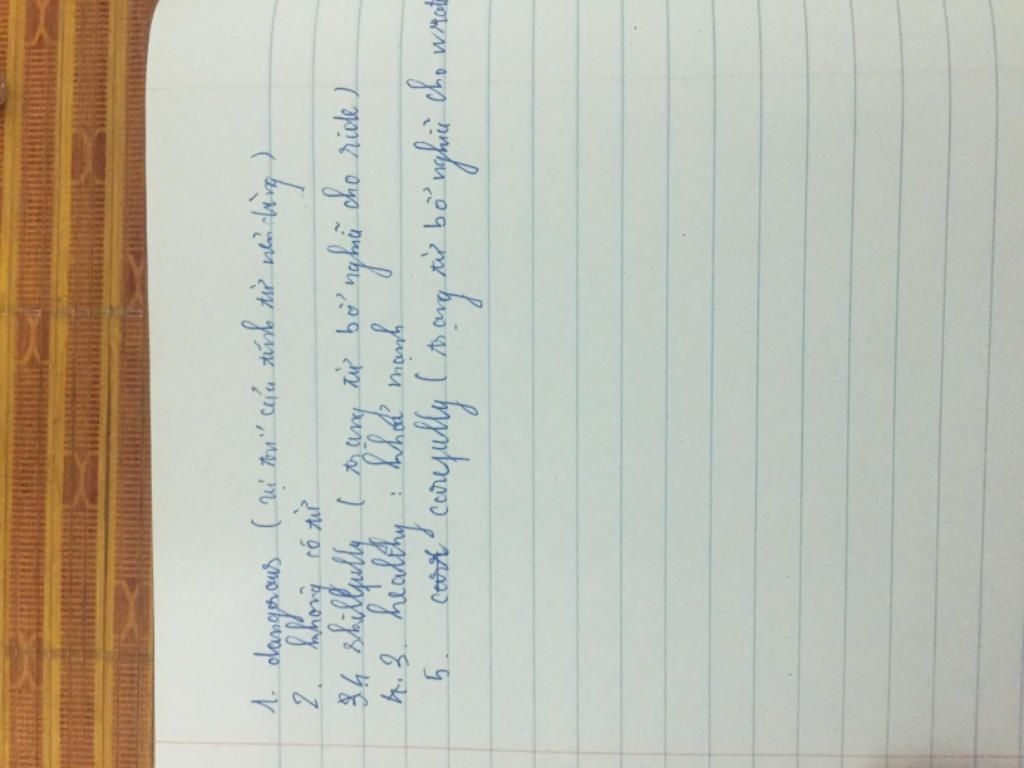 1. dangerous (vị trí của tính từ nên dùng)
2. không có từ
3. 4 skillfully (trạng từ bổ nghĩa cho ride)
4. 3. healthy : khoẻ mạnh
5. carefully (trạng từ bổ nghĩa cho